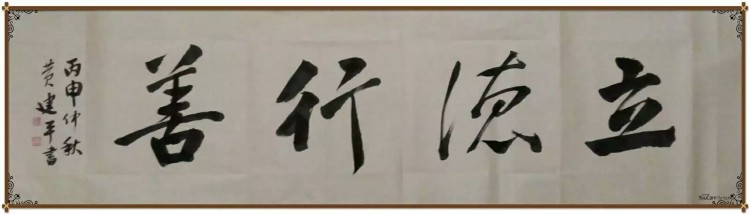 立德行善
丙申仲秋
黄建平書